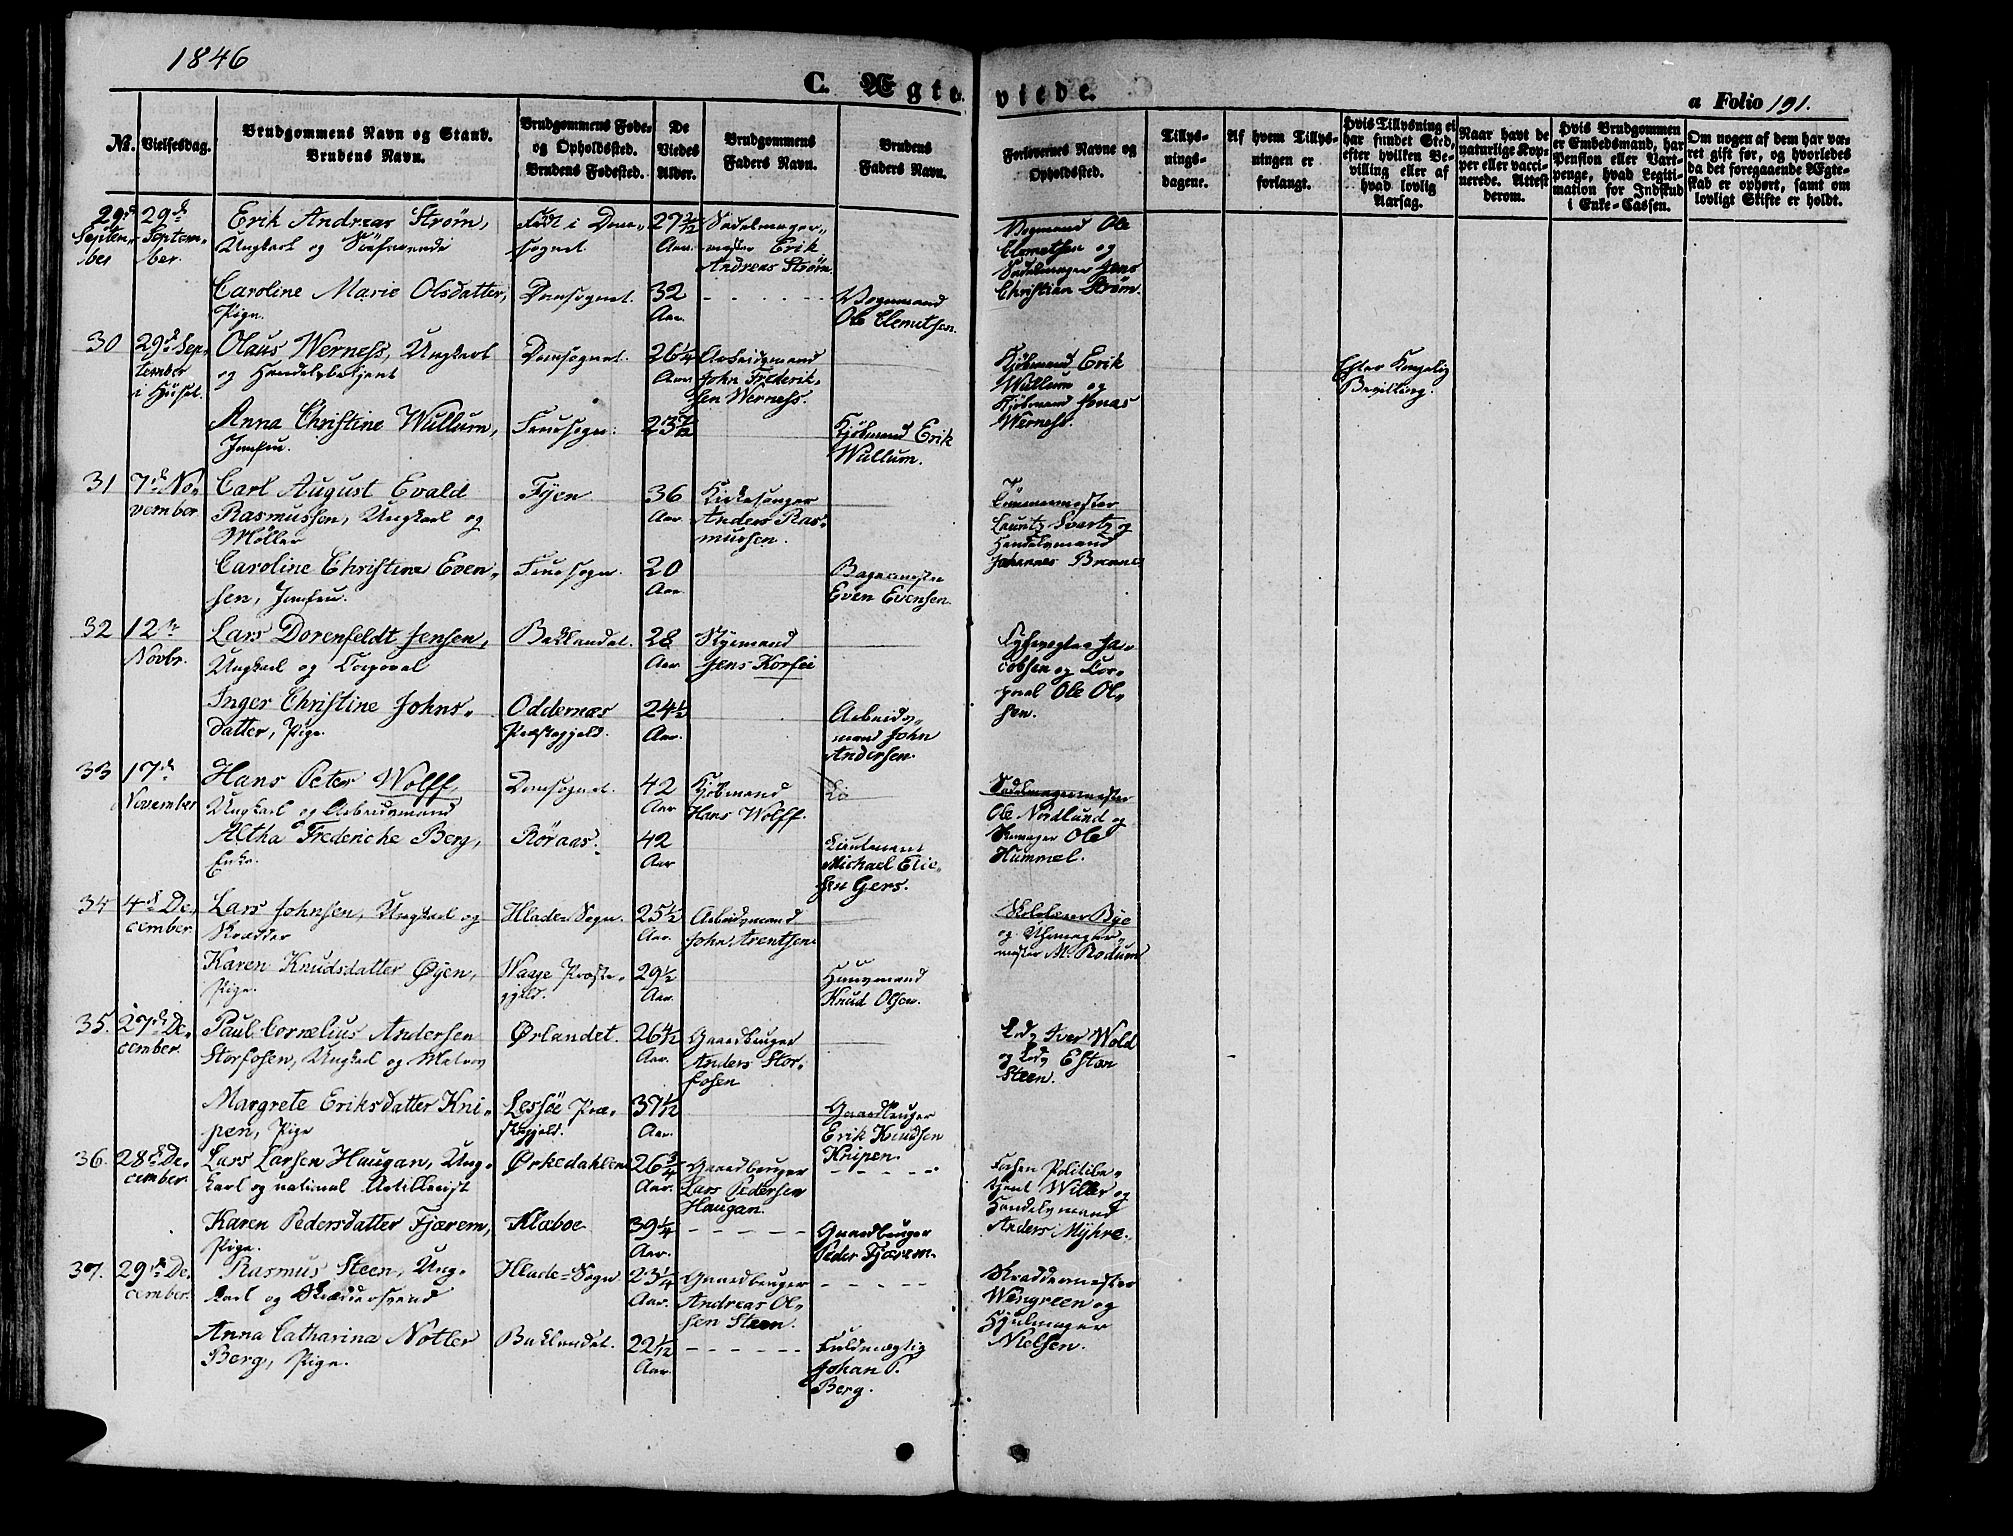 1846
C. Ægte-
viede.
a Folio 191.
No.
Vielsesdag.
Brudgommens Navn og Stand.
Brudens Navn.
Brudgommens Føde-
og Opholdssted.
Brudens Fødested.
De
Viedes
Alder.
Brudgommens
Faders Navn.
Brudens
Faders Navn.
Forlovernes Navne og
Opholdssted.
Tillys-
nings-
dagene.
Af hvem Tillys-
ningen er
forlangt.
Hvis Tillysning ei
har fundet Sted,
efter hvilken Be-
villing eller af
hvad lovlig
Aarsag.
Naar havt de
naturlige Kop-
per eller vacci-
nerede. Attest
derom.
Hvis Brudgommen
er Embedsmand, har
Pension eller Vart-
penge, hvad Legiti-
mation for Indskud
i Enke-Cassen.
Om nogen af dem har væ-
ret gift før, og hvorledes
da det foregaaende Ægte-
skab er ophørt, samt om
lovligt Skifte er holdt.
29d
Septem-
ber
29d
Septem-
ber.
Erik Andreas Strøm,
Ungkarl og Søefarende
Født i Dom-
sognet
27 3/12
Aar.
Sadelmager-
mester Erik
Andreas Strøm
Vognmand Ole
Clemetsen og
Sadelmager Jens
Christian Strøm.
Caroline Marie Olsdatter,
Pige.
Domsognet.
32
Aar.
Vognmand
Ole Clemetsen.
30
29d Sep-
tember
i Huset.
Olaus Werness, Ungkarl
og Handelsbetjent
Domsognet.
26 1/4
Aar.
Arbeidsmand
John Frederik-
sen Werness.
Kjøbmand Erik
Wullum og
Kjøbmand Jonas
Werness.
Efter Kongelig
Bevilling.
Anna Christine Wullum,
Jomfru.
Fruesogn.
23 7/12
Kjøbmand Erik
Wullum.
31
7de No-
vember.
Carl August Evald
Rasmussen, Ungkarl og
Møller
Fyen
36
Aar.
Kirkesanger
Anders Ras-
mussen.
Tømmermester
Lauritz Svartz og
Handelsmand
Johannes Brenne
Caroline Christine Even-
sen, Jomfru.
Fruesogn.
20
Aar.
Bagermester
Even Evensen.
32
12te
Novbr.
Lars Dorenfeldt Jensen,
Ungkarl og Corporal
Baklandet.
28
Aar.
Styrmand
Jens Korsøe
Ja-
cobsen og Cor-
poral Ole Ol-
sen.
Inger Christine Johns-
datter, Pige.
Oddernæs
Præstegjeld.
24 1/2
Aar.
Arbeids-
mand John
Andersen.
33
17de
November
Hans Peter Wolff,
Ungkarl og Arbeidsmand
Domsognet.
42
Aar
Kjøbmand
Hans Wolff.
Sadelmagermester
Ole Nordlund og
Skomager Ole
Hummel.
Altha Frederiche Berg,
Enke.
Røraas.
42
Aar
Lieutenant
Michael Elie-
sen Gers.
34
4de De-
cember.
Lars Johnsen, Ungkarl og
Skrædder
Hlade Sogn.
25 1/2
Aar.
Arbeidsmand
John Arentsen
Skolelærer Bye
og Uhrmager-
mester M. Rodum
Karen Knudsdatter Øyen,
Pige.
Waage Præste-
gjeld.
29 1/2
Aar.
Huusmand
Knud Olsen.
35.
27de De-
cember.
Paul Cornelius Andersen
Storfosen, Ungkarl og Matros
Ørlandet.
26 4/12
Aar.
Gaardbruger
Anders Stor-
fosen
Lods Iver Wold
og Lods Esten
Steen.
Margrete Eriksdatter Kni-
pen, Pige
Lessøe Præ-
stegjeld.
37 1/12
Aar.
Gaardbruger
Erik Knudsen
Knipen.
36.
28de De-
cember.
Lars Larsen Haugan, Ung-
karl og national Artillerist
Ørkedahlen
26 3/4
Aar.
Gaardbruger
Lars Pedersen
Haugan.
Politibe-
tjent Willer og
Handelsmand
Anders Myhre.
Karen Pedersdatter Fjærem,
Pige.
Klæboe
39 1/4
Aar.
Gaardbruger
Peder Fjærem.
37.
29de De-
cember.
Rasmus Steen, Ung-
karl og Skræddersvend
Hlade-Sogn
23 1/4
Aar.
Gaardbruger
Andreas Ol-
sen Steen.
Skræddermester
Wengreen og
Hjulmager
Nielsen.
Anna Catharina Notler
Berg, Pige.
Baklandet.
22 1/12
Aar.
Fuldmægtig
Johan P.
Berg.